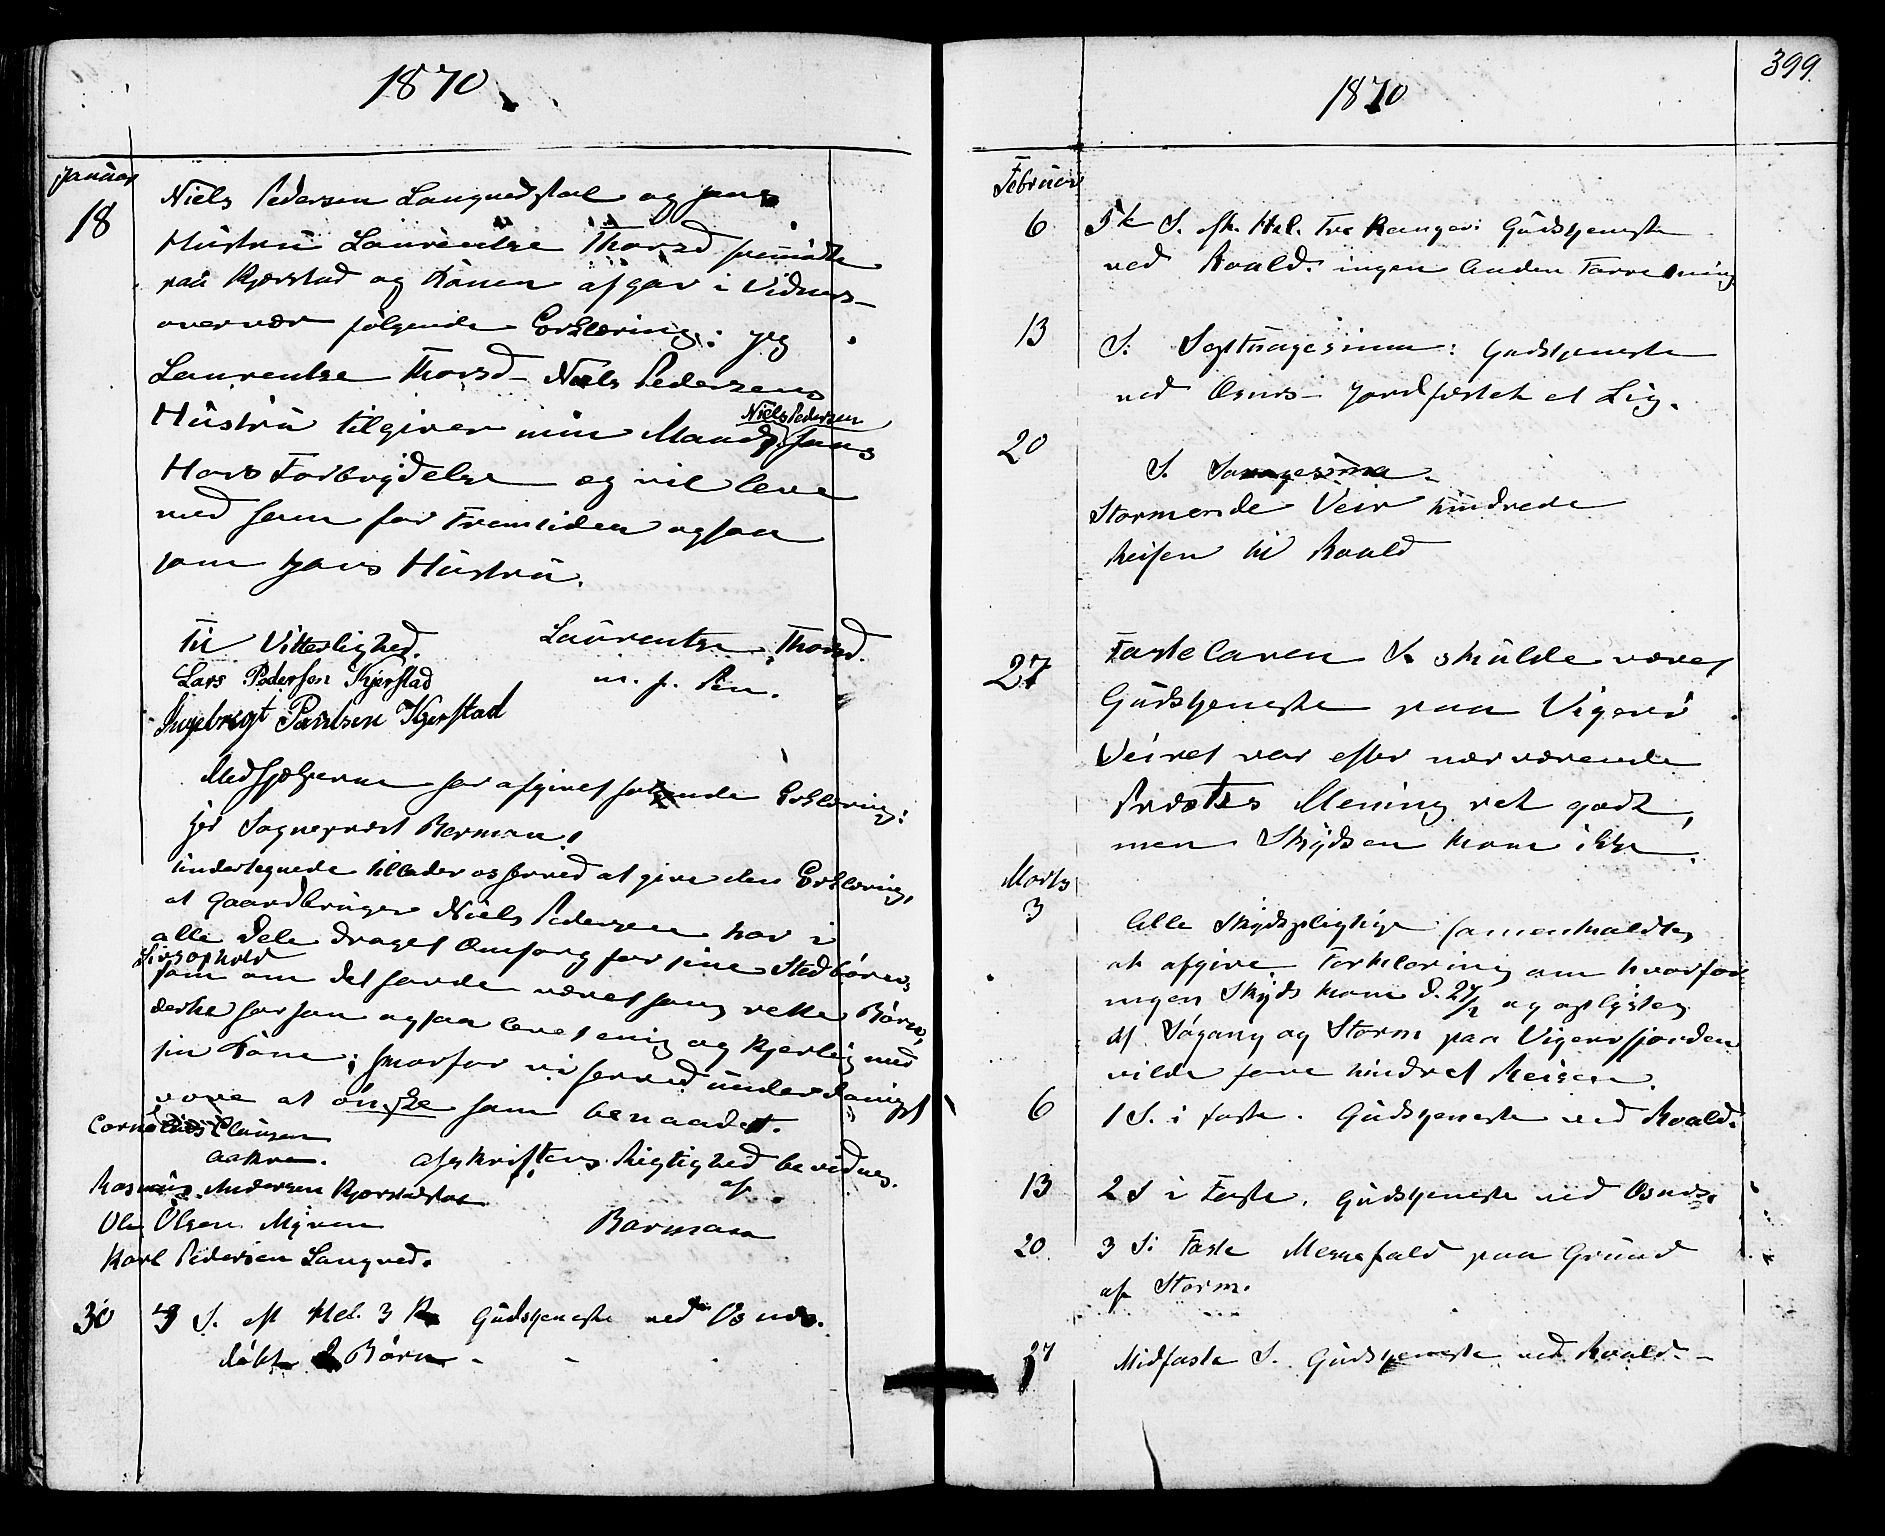 1870
Januar
18
Niels Pedersen Langvedstøl og hans
Hustru Laurentse Thorsd fremødte
paa Kjærstad og Konen afgav i Vidners
overvær følgende Erklæring: Jeg
Laurentse Thorsd Niels Pedersens
Niels Pedersen
Hustru tilgiver min Mand hans
Hors Forbrydelse og vil leve
med ham for Fremtiden ogsaa
som hans Hustru.
Til Vitterlighed. Laurentse Thorsd.
Lars Pedersen Kjerstad m. p. Pen.
Ingebrigt Paulsen Kjerstad
Medhjælperne har afgivet følgende Erklæring:
Hr Sognepræst Barman!
Undertegnede tillader os herved at give den Erklæring,
at Gaardbruger Niels Pedersen har i
alle Dele draget Omsorg for sine Stedbørns
Livsophold
som om det havde været hans rette Børn,
derhos har han ogsaa levet enig og kjerlig med
sin Kone; hvorfor vi herved underdanigst
vove at ønske ham benaadet.
Cornelius Clausen
Aakre. Afskriftens Rigtighed bevidnes
af
Rasmus Andersen Kjørstadstøl
Ole Olsen Myren Barman
Karl Pedersen Langved.
30 3 S. eft Hel. 3 K Gudstjeneste ved Osnes.
døbt 2 Børn
399
1870
Februar
6 5te S. eft. Hel. Tre Konger: Gudstjeneste
ved Roald. ingen Anden Forretning
13 S. Septuagesima: Gudstjeneste
ved Osnes jordfæstet et Lig.
20 S. Sexagesima.
Stormende Veir hindrede
Reisen til Roald
27 Fastelavens S. skulde været
Gudstjeneste paa Vigerø
Veiret var efter nærværende
Præstes Mening ret godt,
men Skydsen kom ikke.
Marts
3 Alle Skydspligtige samenkaldtes
at afgive Forklaring om hvorfor
ingen Skyds kom d. 27/2 og oplystes
at Søgang og Storm paa Vigerøfjorden
vilde have hindret Reisen.
6 1 S. i Faste. Gudstjeneste ved Roald.
13 2 S i Faste. Gudstjeneste ved Osnes.
20 3 S: Faste Messefald paa Grund
af Storm.
27 Midfaste S. Gudstjeneste ved Roald.